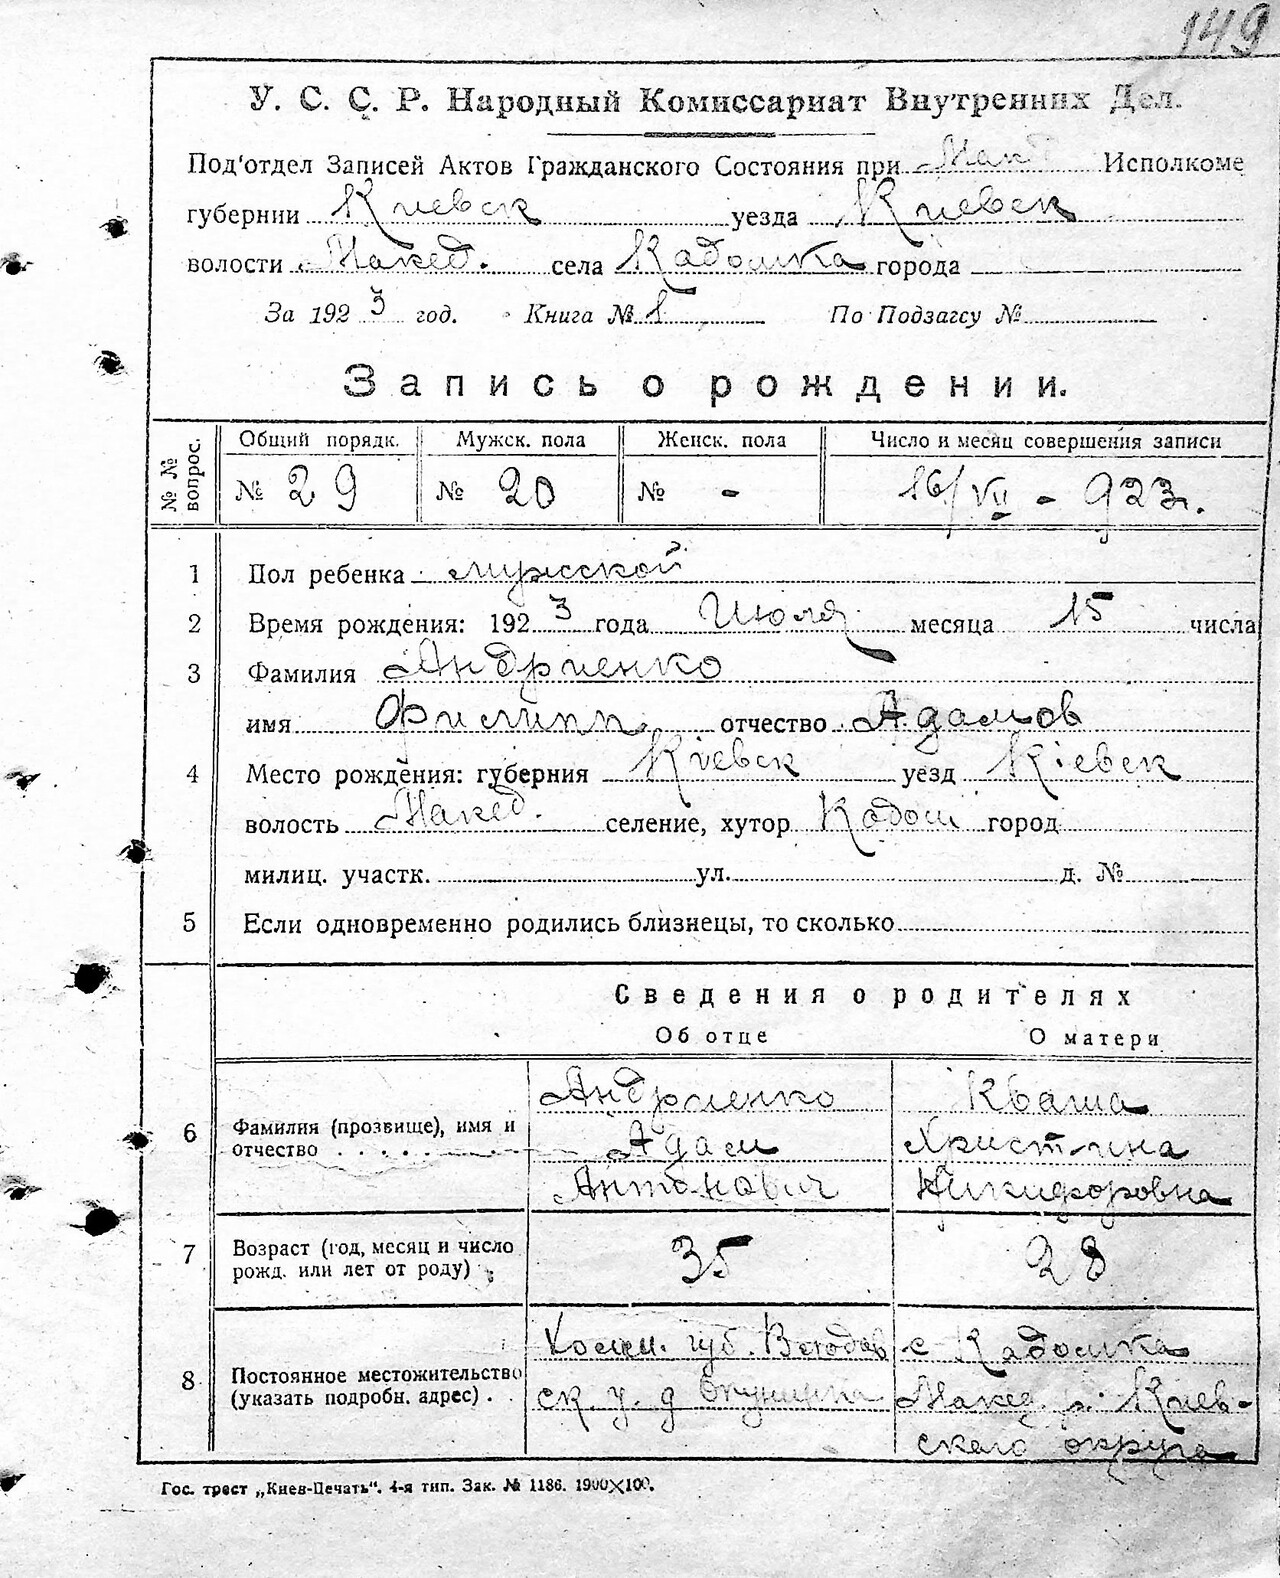 149
У. С. С. Р. Народный Комиссариат Внутренних Дел.
Под'отдел Записей Актов Гражданского Состояния при Исполкоме
губернии Киевск уезда Киевск
волости Макед. села Кадомка города
За 1923 год. Книга № 1 По Подзагсу №
Запись о рождении.
№ № вопрос. Общий порядк. Мужск. пола Женск. пола Число и месяц совершения записи
№ 29 № 20 № - 16/VII - 923 г.
1 Пол ребенка мужской
2 Время рождения: 1923 года Июля месяца 15 числа
3 Фамилия Андриенко
имя Филипп отчество Адамов
4 Место рождения: губерния Киевск уезд Кіевск
волость Макед. селение, хутор Кадом город
милиц. участк. ул. д. №
5 Если одновременно родились близнецы, то сколько
Сведения о родителях
Об отце О матери
6 Фамилия (прозвище), имя и отчество . . . . . Андриенко Адам Антонович Кваша Христина Никифоровна
7 Возраст (год, месяц и число рожд. или лет от роду) 35 28
8 Постоянное местожительство (указать подробн. адрес) . . губ. ск. у. д с Кадомка Макед. р. Киевского округа
Гос. трест „Киев-Печать“. 4-я тип. Зак. № 1186. 1900×100.